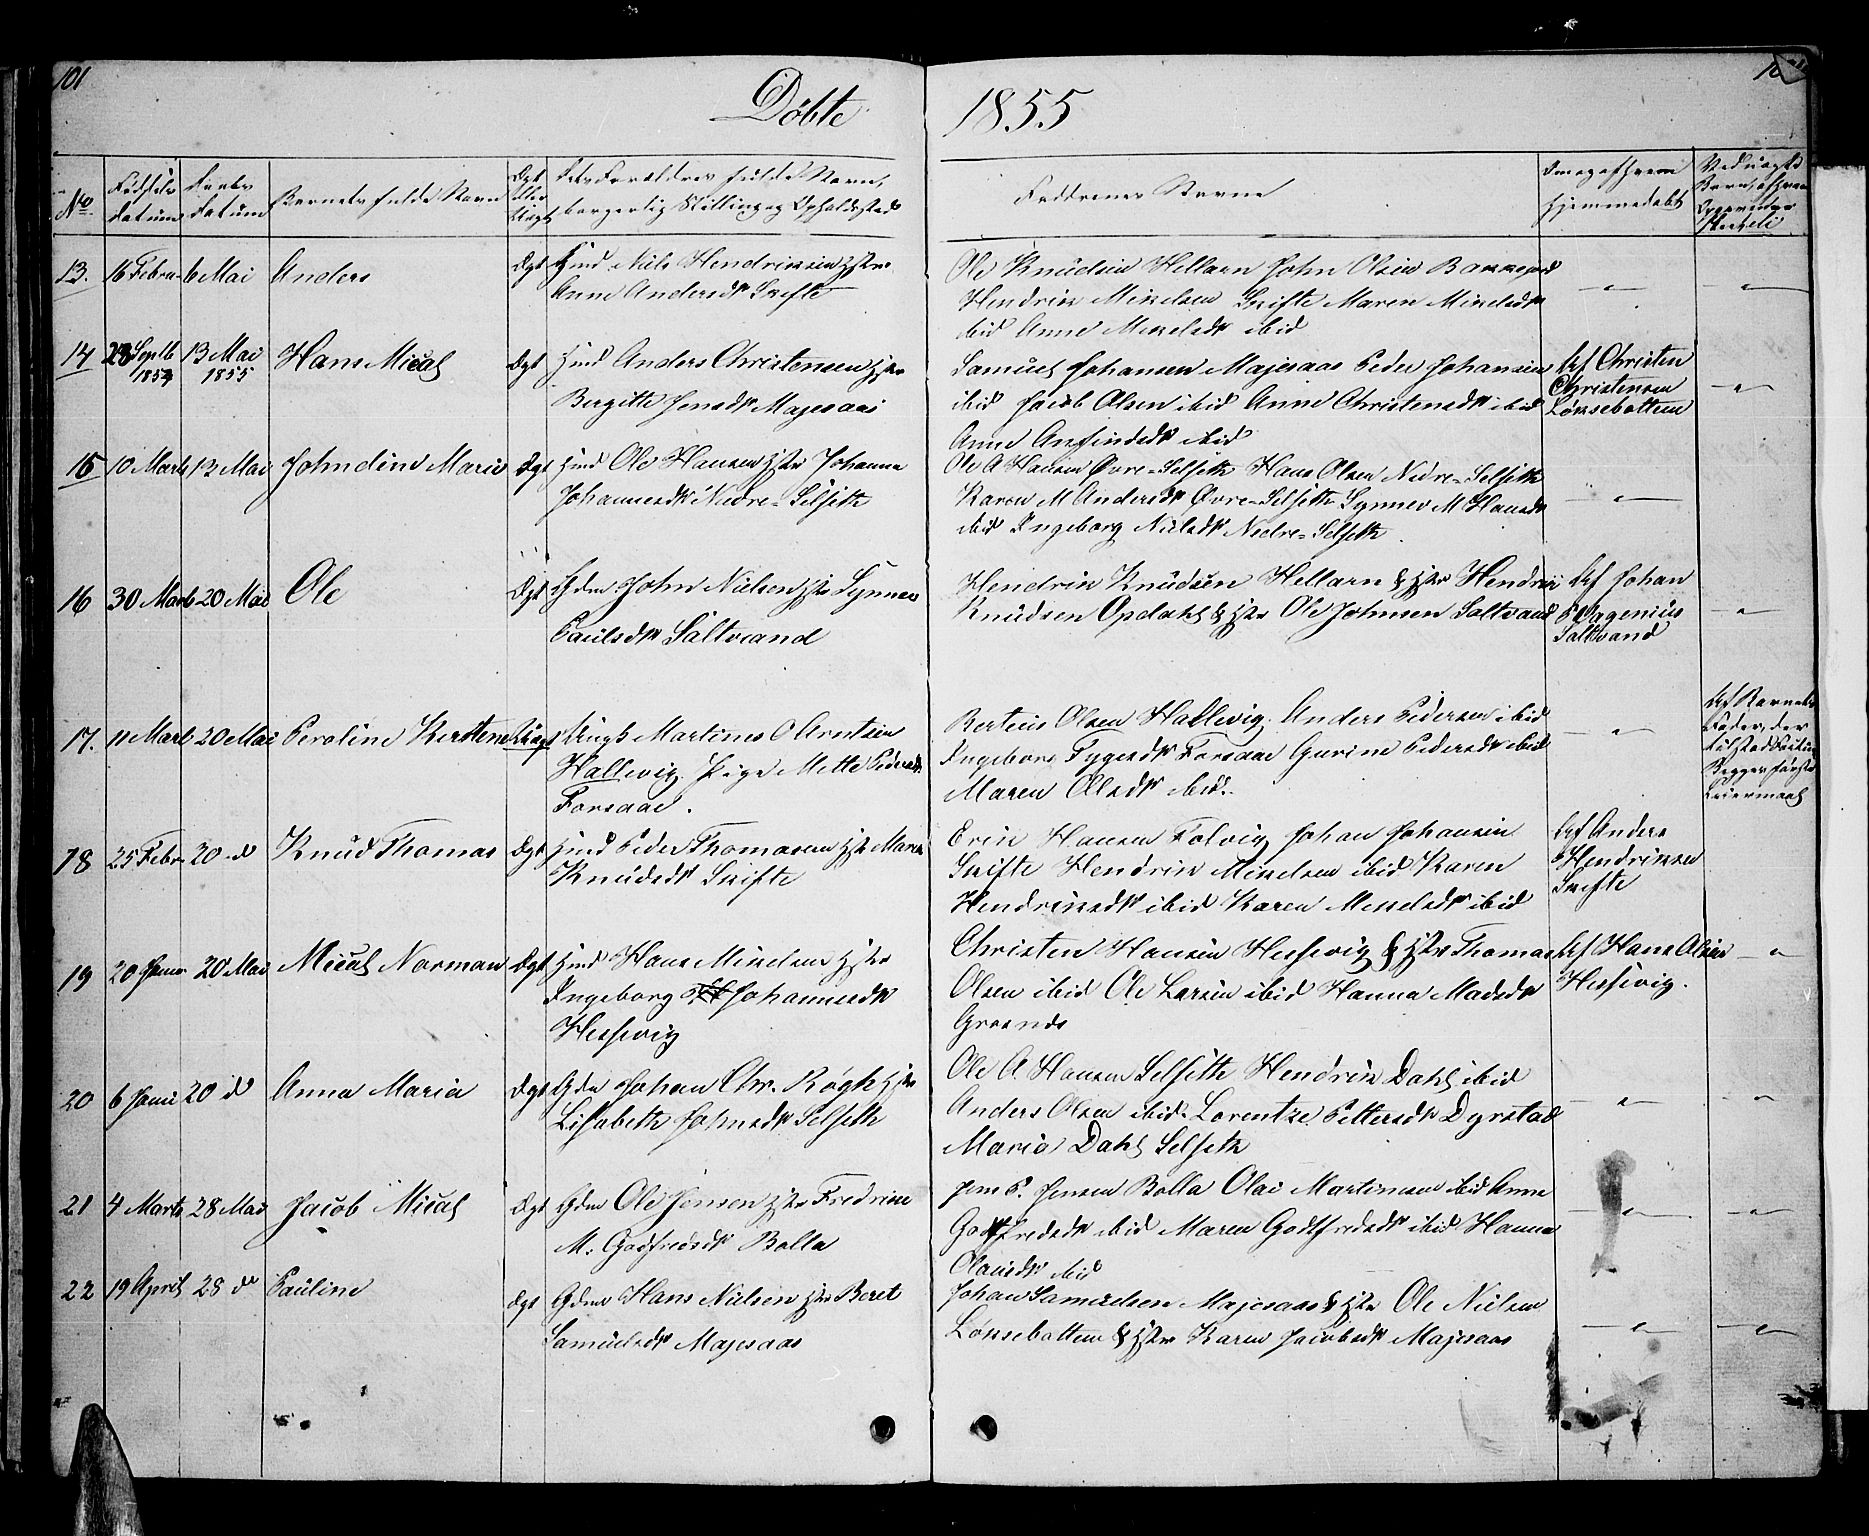 101
Døbte 1855
No
Fødsels Datum
Daabs Datum
Barnets fulde Navn
Ægt Eller Uægt
Forældres fulde Navn,
borgerlig Stilling og Opholdssted
Faddernes Navne
13. 16 Febru 6 Mai Anders Ægt Hmd Niels Hendriksen Hstr
Anne Andersdtr Skifte
Ole Knudsen Hellarn John Olsen
Hendrik Mikelsen Skifte Maren Mikelsdtr
ibid Anne Mikelsdtr ibid
14 28 Septb 13 Mai Hans Mical Ægt Hmd Anders Christensen Hstr
1854 1855
Birgitte Jensdtr Majesaas
Samuel Johansen Majesaas Peder Johansen
ibid Jacob Olsen ibid Anne Christensdtr ibid
Anne Anfindsdtr ibid
Af Christen
Christensen
Løksebottem
15 10 Marts 13 Mai Johndine Marie Ægt Hmd Ole Hansen Hstr Johanna
Johannesdtr Nedre-Selseth
Ole A Hansen Øvre-Selseth Hans Olsen Nedre-Selseth
Karen M Andersdtr Øvre-Selseth Synnev M Hansdtr
ibid Ingeborg Nielsdtr Nedre-Selseth.
16 30 Marts 20 Mai Ole Ægt Gdm John Nielsen Hstr Synnev
Paulsdtr Saltvand
Hendrik Knudsen Hellarn & Hstr Hendrik
Knudsen Opdahl & Hstr Ole Johnsen Saltvand
Af Johan
Pelagenius
Saltvand
17. 11 Marts 20 Mai Peroline Kirstine Uægt Ungk Martinus O Arntsen
Hallevig. Pige Mette Pedersdtr
Forsaae.
Berteus Olsen Hallevig. Anders Pedersen ibid
Ingeborg Tygesdtr Forsaae Gurine Pedersdtr ibid
Maren Olsdtr ibid.
Af Barnets
Fader, der
Begges første
Leiermaal
18 25 Febr 20 d Knud Thomas Ægt Hmd Peder Thomasen Hstr Maren
Knudsdtr Skifte
Erik Hansen Tolvig Johan Johansen
Skifte Hendrik Mikelsen ibid Karen
Hendriksdtr ibid Karen Mikelsdtr ibid
Af Anders
Hendriksen
Skifte
19 20 Janu 20 Mai Mical Norman Ægt Hmd Hans Mikelsen Hstr
Ingeborg Johannesdtr
Hessevig
Christen Hansen Hessevig & Hstr Thomas
Olsen ibid Ole Larsen ibid Hanna Madsdtr
Graande
Af Hans Olsen
Hessevig.
20 6 Janu 20 d Anna Maria Ægt Gdm Johan Chr. Røgh Hstr
Lisabeth Johnsdtr Selseth
Ole A. Hansen Selseth Hendrik Dahl ibid
Anders Olsen ibid. Lorentze Pettersdtr Dyrstad
Maria Dahl Selseth
21 4 Marts 28 Mai Jacob Mical Ægt Gdm Ole Jensen Hstr Fredrikke
M. Godfredsdtr Bolla
Jens P. Jensen Bolla Olai Martinsen ibid Anne
Godtfredsdtr ibid Maren Godtfredsdtr ibid Hanna
Olaisdtr ibid
22 19 April 28 d Pauline Ægt Gdm Hans Nielsen Hstr Beret
Samuelsdtr Majesaas
Johan Samuelsen Majesaas & Hstr Ole Nielsen
Løksebottem & Hstr Karen Jacobsdtr Majesaas